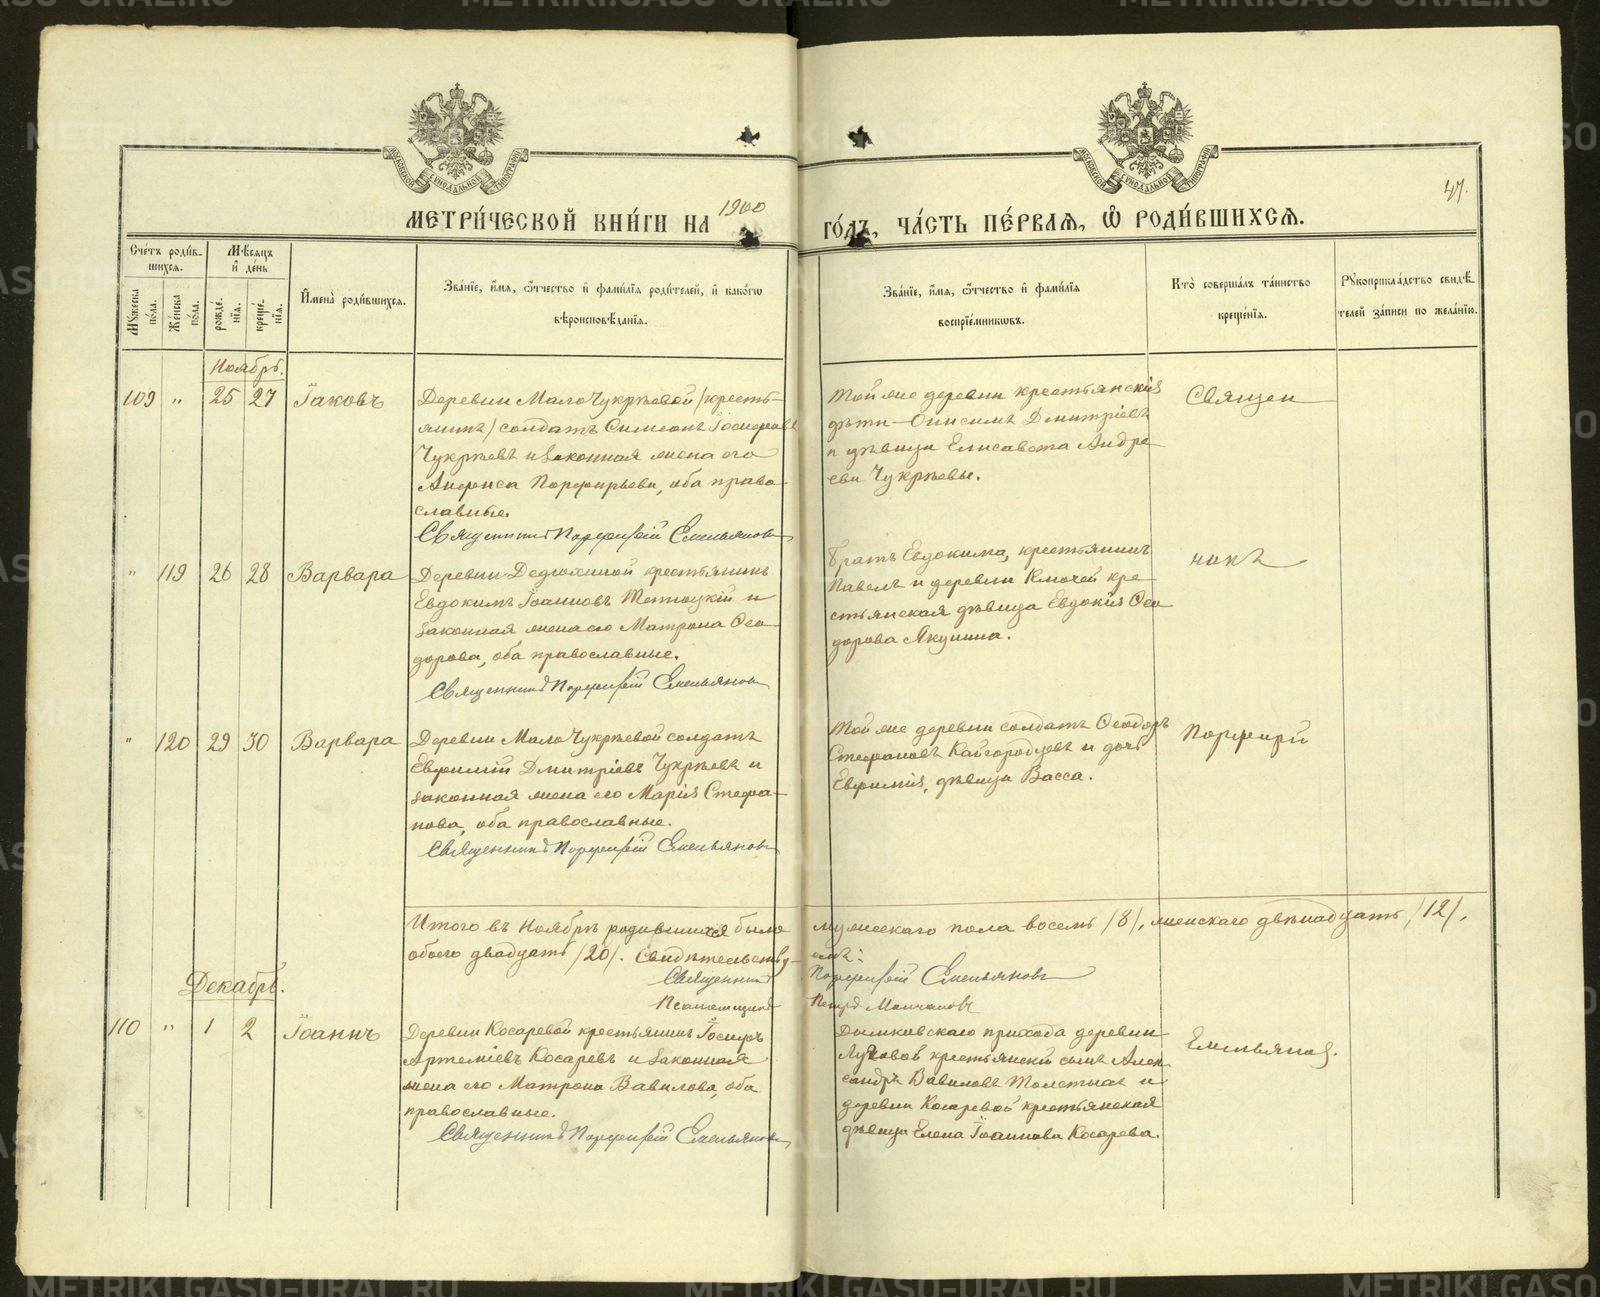 МЕТРИ́ЧЕСКОЙ КНИ́ГИ НА 1900 ГО́ДЪ, ЧА́СТЬ ПЕ́РВАЯ, Ѡ РОДИ́ВШИХСЯ.
47.
Сче́тъ роди́в-
шихся.
Мꙋжеска по́ла.
Же́нска по́ла.
Мѣ́сяцъ
и҆ де́нь
рожде́-
нїя.
креще́-
нїя.
И҆мена̀ роди́вшихся.
Зва́нїе, и҆́мя, ѻ҆́тчество и҆ фами́лїя роди́телей, и҆ како́гѡ
вѣроисповѣ́данїя.
Зва́нїе, и҆́мя, ѻ҆́тчество и҆ фами́лїя
воспрїе́мникѡвъ.
Кто̀ соверша́лъ та́инство
креще́нїя.
Рꙋкоприкла́дство свидѣ́-
телей за́писи по жела́нїю.
Ноябрь.
109 " 25 27 Іаковъ
Деревни Мало Чукрѣевой (кресть-
янинъ) солдатъ Симеонъ Іосифовъ
Чукрѣевъ и законная жена его
Анфиса Порфирьева, оба право-
славные.
Священникъ Порфирій Емельяновъ
Той же деревни крестьянскія
дѣти – Онисимъ Дмитріевъ
и дѣвица Елисавета Андре-
ева Чукрѣевы.
Священ
" 119 26 28 Варвара
Деревни Дедюхиной крестьянинъ
Евдокимъ Іоанновъ и
законная жена его Матрона Ѳео-
дорова, оба православные.
Священникъ Порфирій Емельяновъ
Братъ Евдокима, крестьянинъ
Павелъ и деревни Ключей кре-
стьянская дѣвица Евдокія Ѳео-
дорова Якунина.
никъ
" 120 29 30 Варвара
Деревни Мало Чукрѣевой солдатъ
Евфимій Дмитріевъ Чукрѣевъ и
законная жена его Марія Стефа-
нова, оба православные.
Священникъ Порфирій Емельяновъ
Той же деревни солдатъ Ѳеодоръ
Стефановъ Кайгородцевъ и дочь
Евфимія, дѣвица Васса.
Порфирій
Итого въ Ноябрѣ родившихся было мужескаго пола восемь (8), женскаго двѣнадцать (12),
обоего двадцать (20). Свидѣтельству-
емъ:
Священникъ Порфирій Емельяновъ
Псаломщикъ Петръ Молчановъ
Декабрь.
110 " 1 2 Іоаннъ
Деревни Косаревой крестьянинъ Іосифъ
Артеміевъ Косаревъ и законная
жена его Матрона Вавилова, оба
православные.
Священникъ Порфирій Емельяновъ
Дымковскаго прихода деревни
Луковой крестьянскій сынъ Алек-
сандръ Вавиловъ и
деревни Косаревой крестьянская
дѣвица Елена Іоаннова Косарева.
Емельяновъ.
METRIKI.GASO-URAL.RU